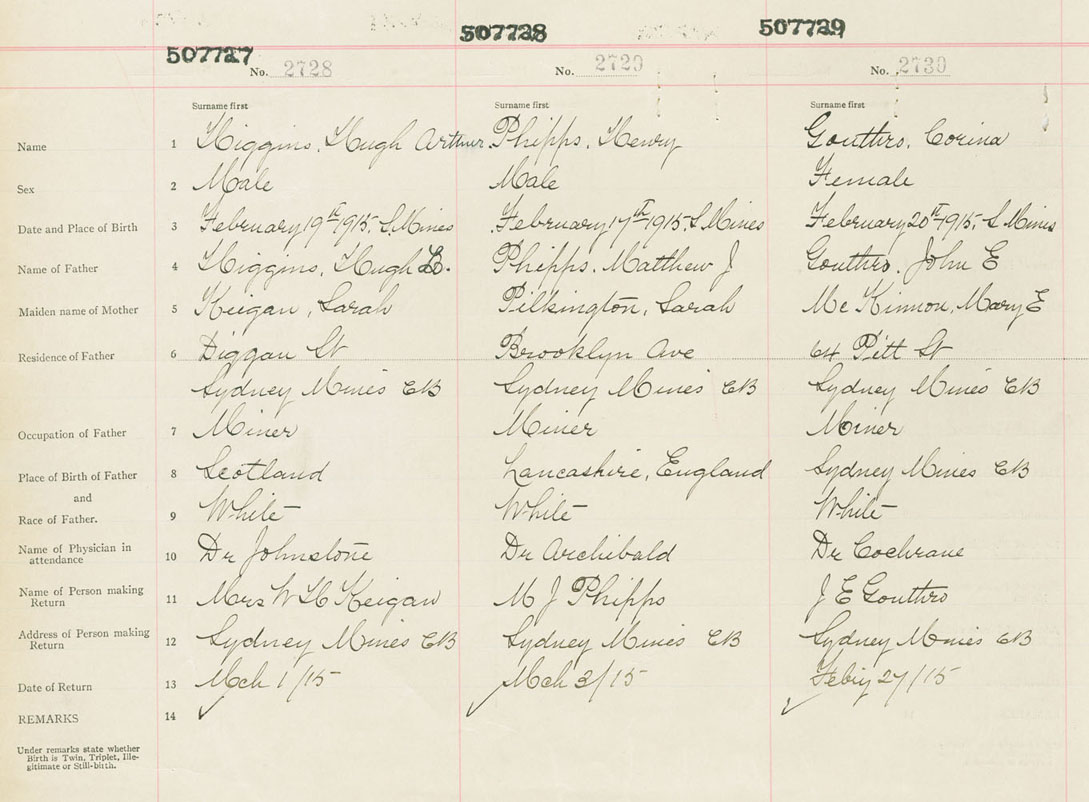 507727 507728 507729
No. 2728 No. 2729 No. 2730
Surname first Surname first Surname first
Name 1 Higgins, Hugh Arthur Phipps, Henry Gouthro, Corina
Sex 2 Male Male Female
Date and Place of Birth 3 February 19th 1915, S. Mines February 17th 1915, S Mines February 20th 1915, S Mines
Name of Father 4 Higgins, Hugh B. Phipps, Matthew J Gouthro, John E
Maiden name of Mother 5 Keigan, Sarah Pilkington, Sarah Mc Kinnon, Mary E
Residence of Father 6 Diggan St Brooklyn Ave 64 Pitt St
Sydney Mines CB Sydney Mines CB Sydney Mines CB
Occupation of Father 7 Miner Miner Miner
Place of Birth of Father 8 Scotland Lancashire, England Sydney Mines CB
and
Race of Father. 9 White White White
Name of Physician in
attendance 10 Dr Johnstone Dr Archibald Dr Cochrane
Name of Person making
Return 11 Mrs W H Keigan M J Phipps J E Gouthro
Address of Person making
Return 12 Sydney Mines CB Sydney Mines CB Sydney Mines CB
Date of Return 13 Mch 1/15 Mch 3/15 Febry 27/15
REMARKS 14
Under remarks state whether
Birth is Twin, Triplet, Ille-
gitimate or Still-birth.